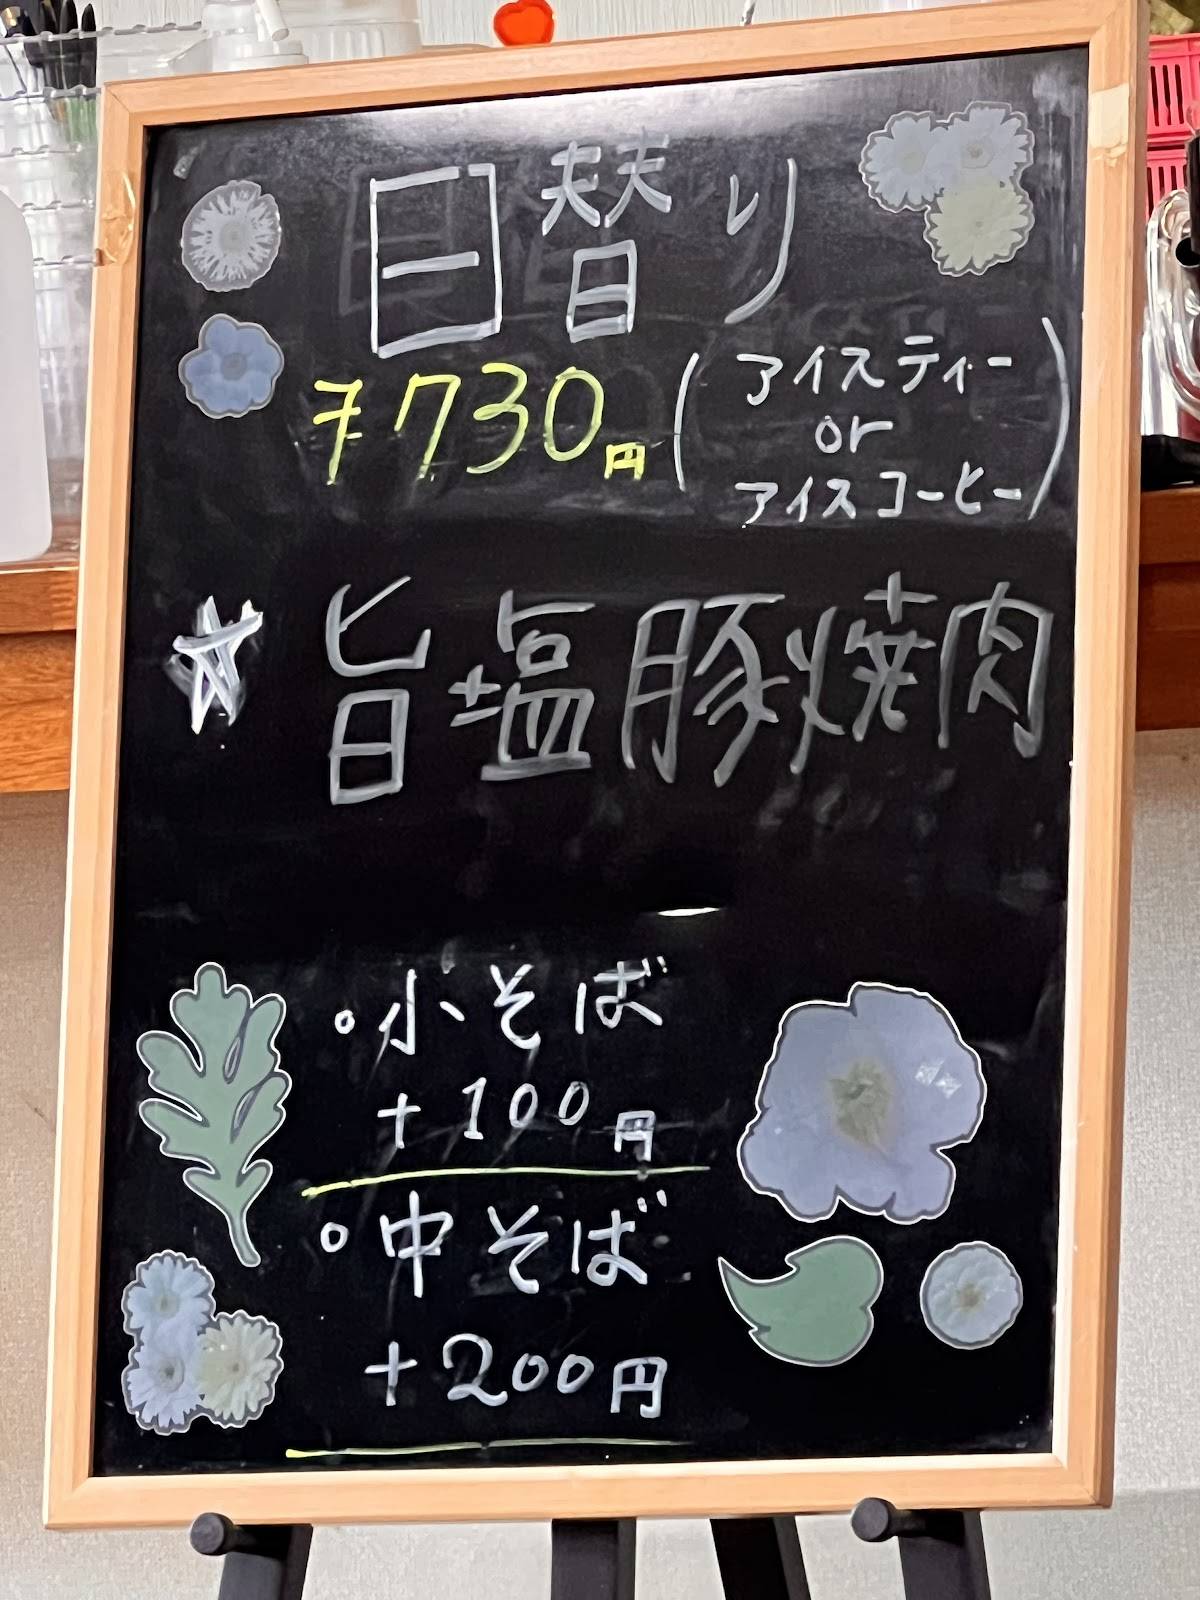 日替り
¥730円
(アイスティー
or
アイスコーヒー)
☆ 旨塩豚焼肉
・小そば
+100円
・中そば
+200円